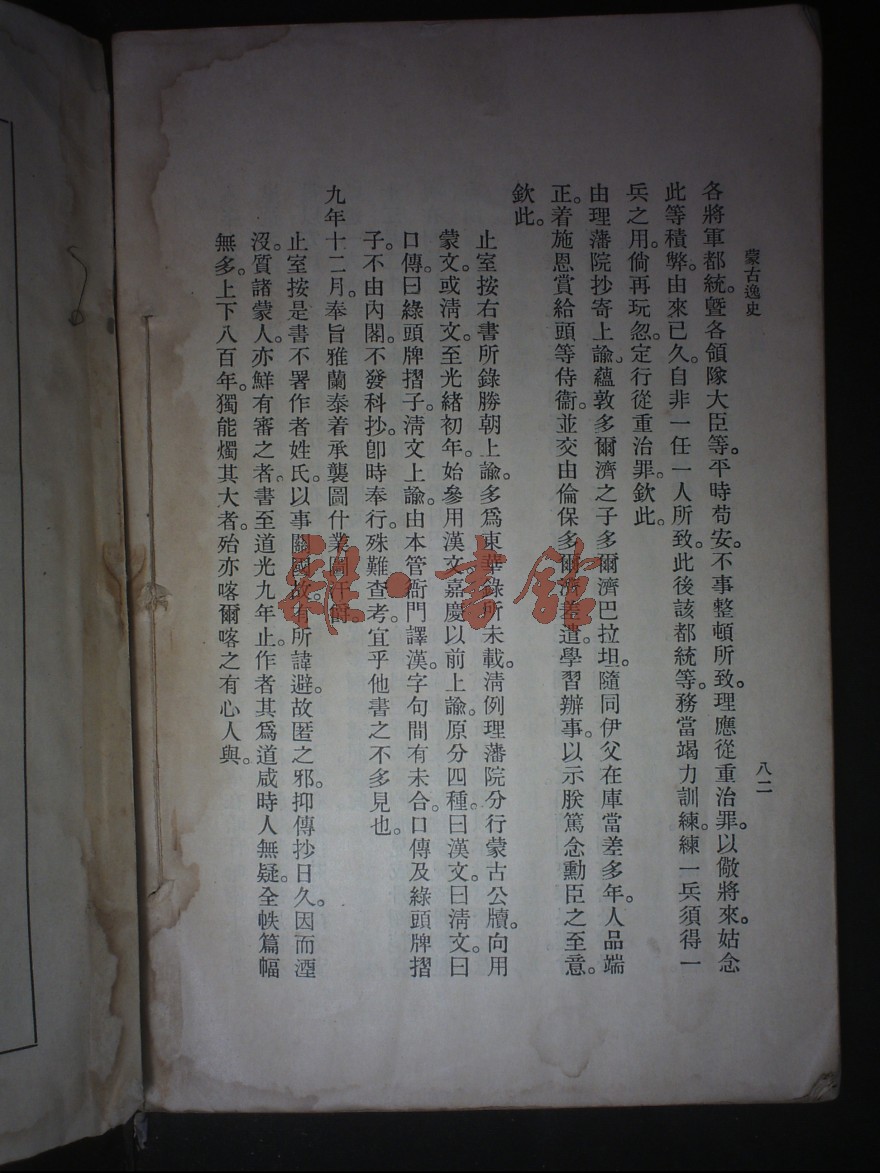 蒙古逸史
八二
各將軍都統。曁各領隊大臣等。平時苟安。不事整頓所致。理應從重治罪。以儆將來。姑念
此等積弊。由來已久。自非一任一人所致。此後該都統等。務當竭力訓練。練一兵須得一
兵之用。倘再玩忽。定行從重治罪。欽此。
由理藩院抄寄上諭。蘊敦多爾濟之子多爾濟巴拉坦。隨同伊父在庫當差多年。人品端
正。着施恩賞給頭等侍衞。並交由倫保多爾濟差遣。學習辦事。以示朕篤念勳臣之至意。
欽此。
止室按右書所錄勝朝上諭。多爲東華錄所未載。淸例理藩院分行蒙古公牘。向用
蒙文。或淸文。至光緒初年。始參用漢文。嘉慶以前上諭。原分四種。曰漢文。曰淸文。曰
口傳。曰綠頭牌摺子。淸文上諭。由本管衙門譯漢。字句間有未合。口傳及綠頭牌摺
子。不由內閣。不發科抄。卽時奉行。殊難查考。宜乎他書之不多見也。
九年十二月。奉旨雅蘭泰着承襲圖什業圖汗爵。
止室按是書不署作者姓氏。以事關國故。有所諱避。故匿之邪。抑傳抄日久。因而湮
沒。質諸蒙人。亦鮮有審之者。書至道光九年止。作者其爲道咸時人無疑。全帙篇幅
無多。上下八百年。獨能燭其大者。殆亦喀爾喀之有心人與。
雜·書館